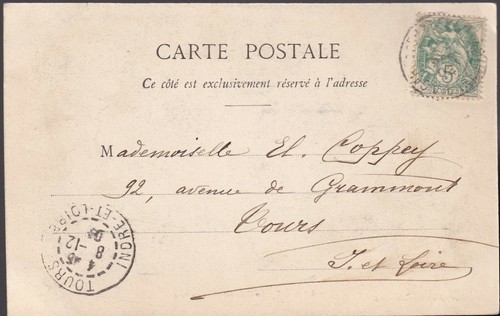 CARTE POSTALE
Ce côté est exclusivement réservé à l'adresse
Mademoiselle El. Coppey
92, avenue de Grammont
Tours
I. et Loire
5
TOURS INDRE-ET-LOIRE
8 -12
4